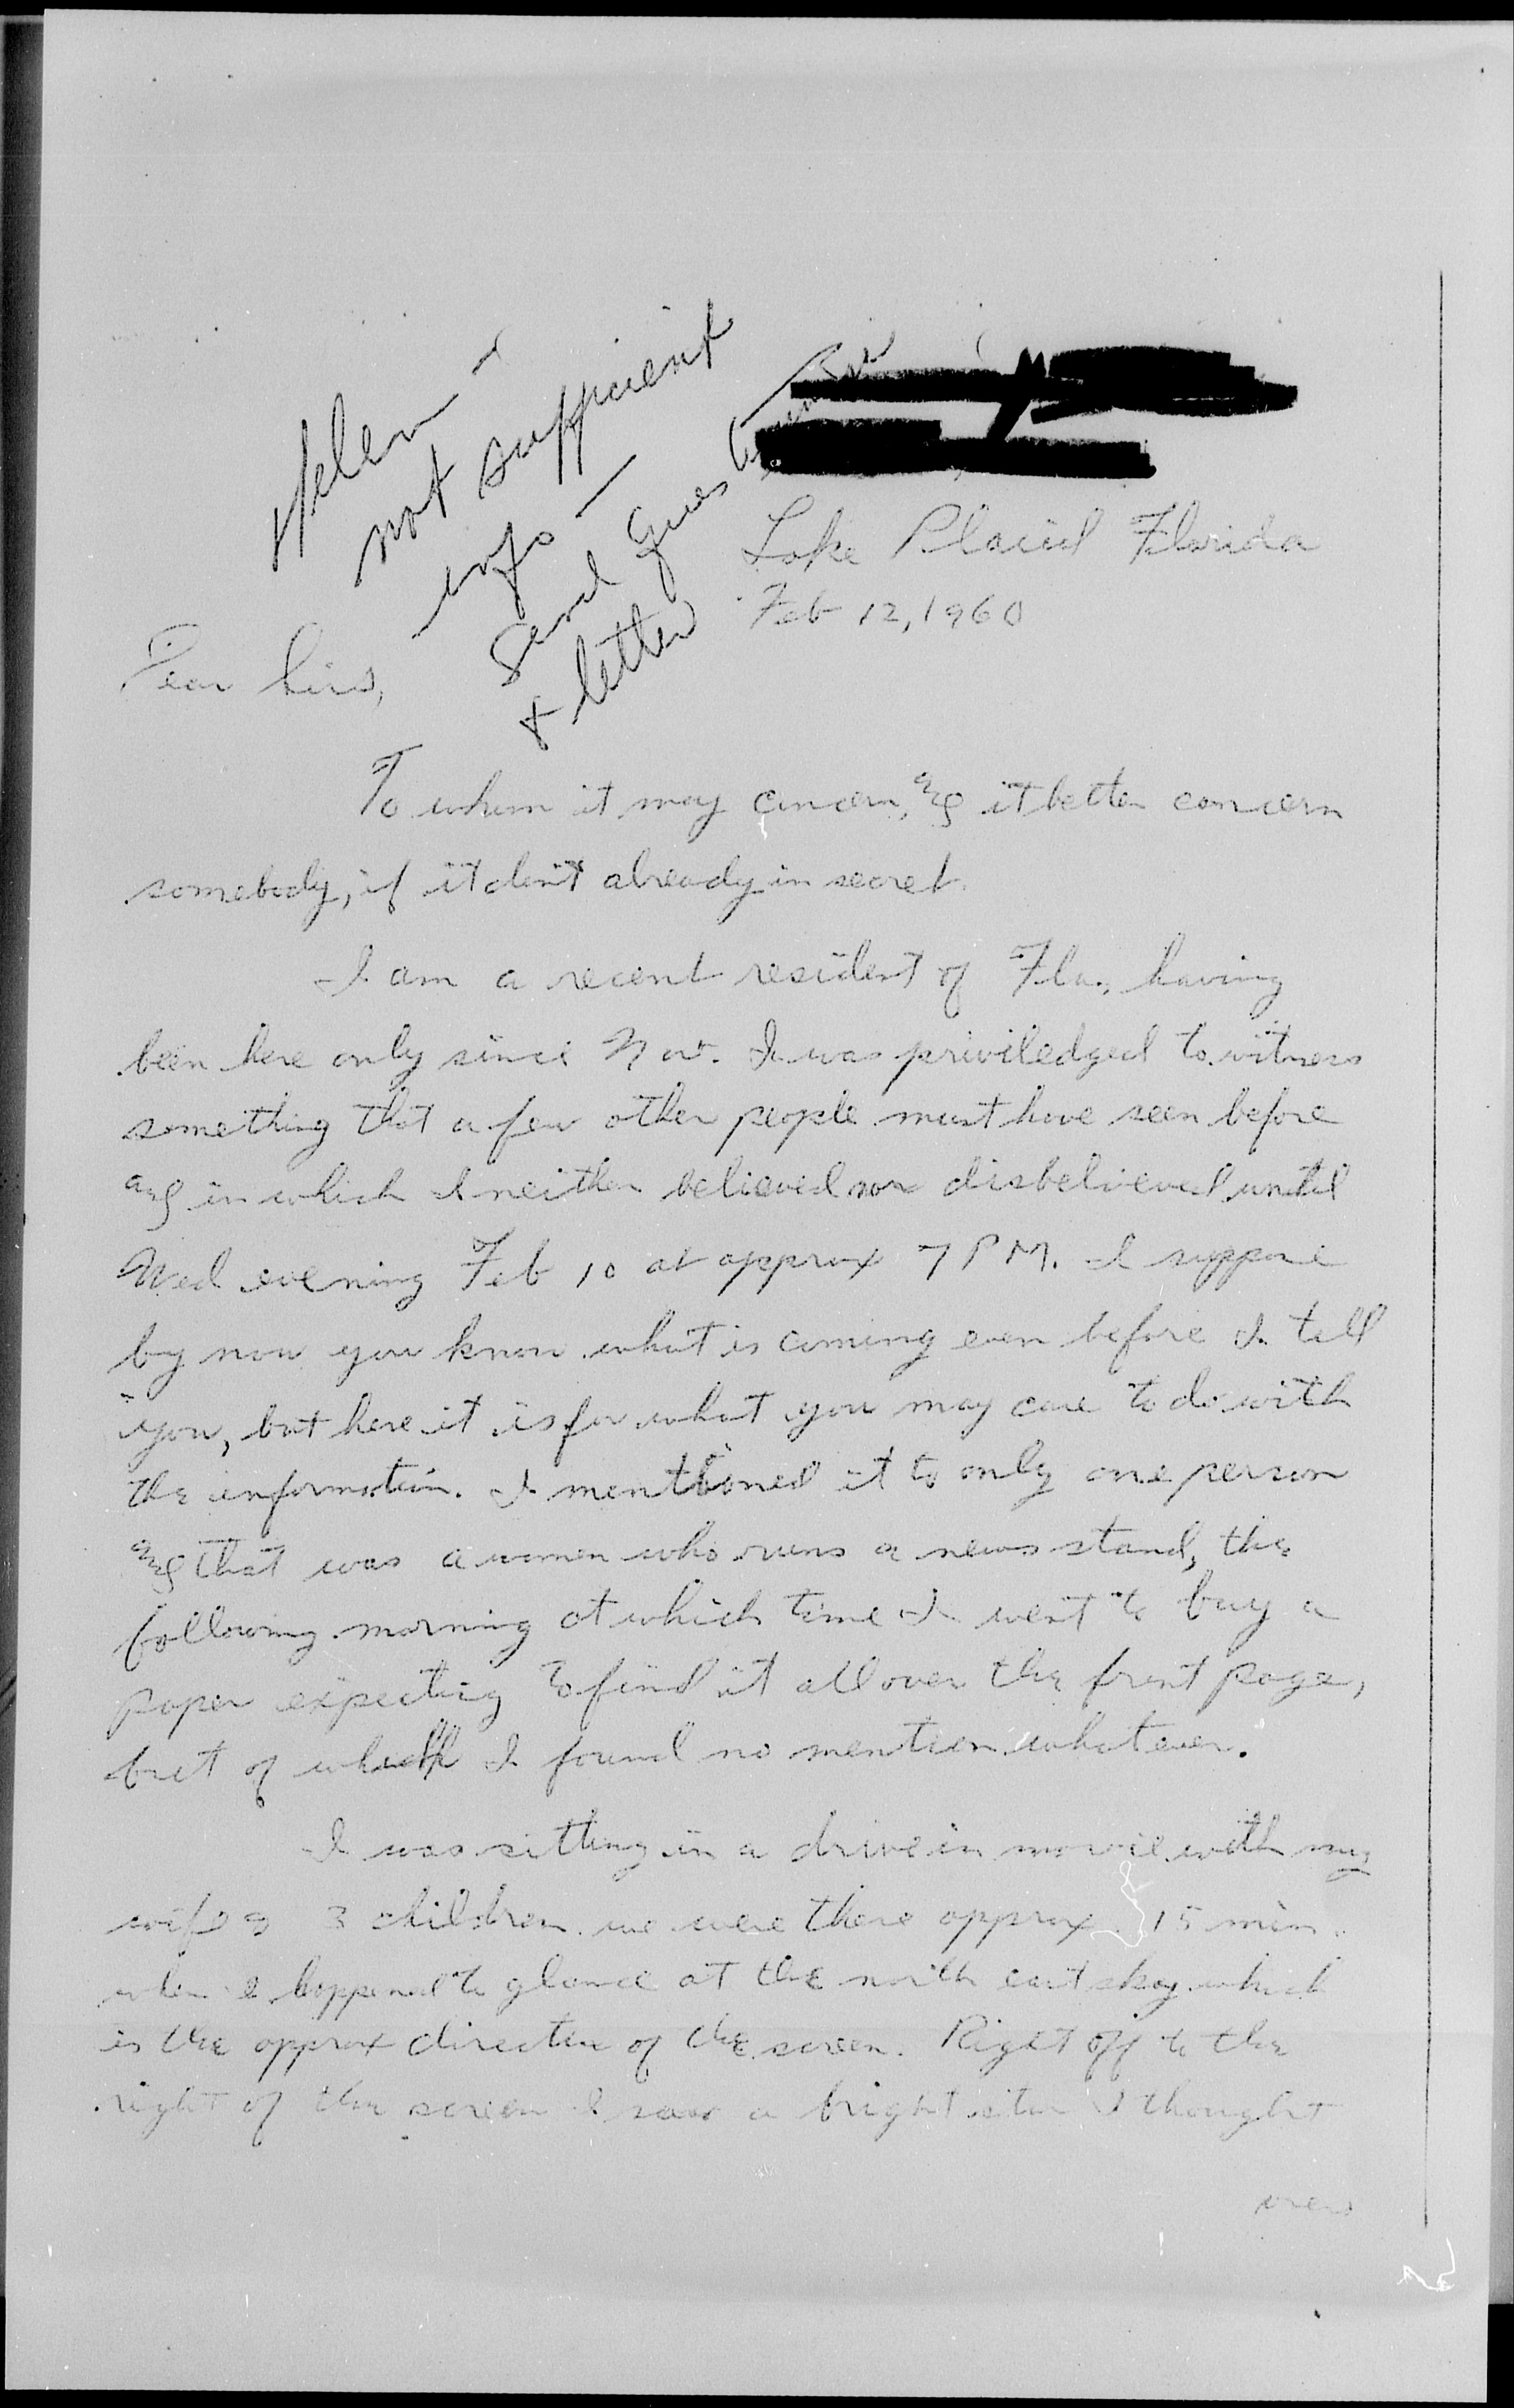 Helen -
not sufficient
info -
Send Questionnaire
& letter
Lake Placid Florida
Feb 12, 1960
Dear Sirs,
To whom it may concern, and it better concern
somebody, if it don't already in secret.
I am a recent resident of Fla., having
been here only since Nov. I was priviledged to witness
something that a few other people must have seen before
and in which I neither believed nor disbelieved until
Wed evening Feb 10 at approx 7 PM. I suppose
by now you know what is coming even before I tell
you, but here it is for what you may care to do with
the information. I mentioned it to only one person
and that was a women who runs a news stand, the
following morning at which time I went to buy a
paper expecting to find it all over the front page,
but of which I found no mention whatever.
I was sitting in a drive in movie with my
wife & 3 children we were there approx 15 min.
when I happened to glance at the north east sky which
is the approx direction of the screen. Right off to the
right of the screen I saw a bright star I thought
over